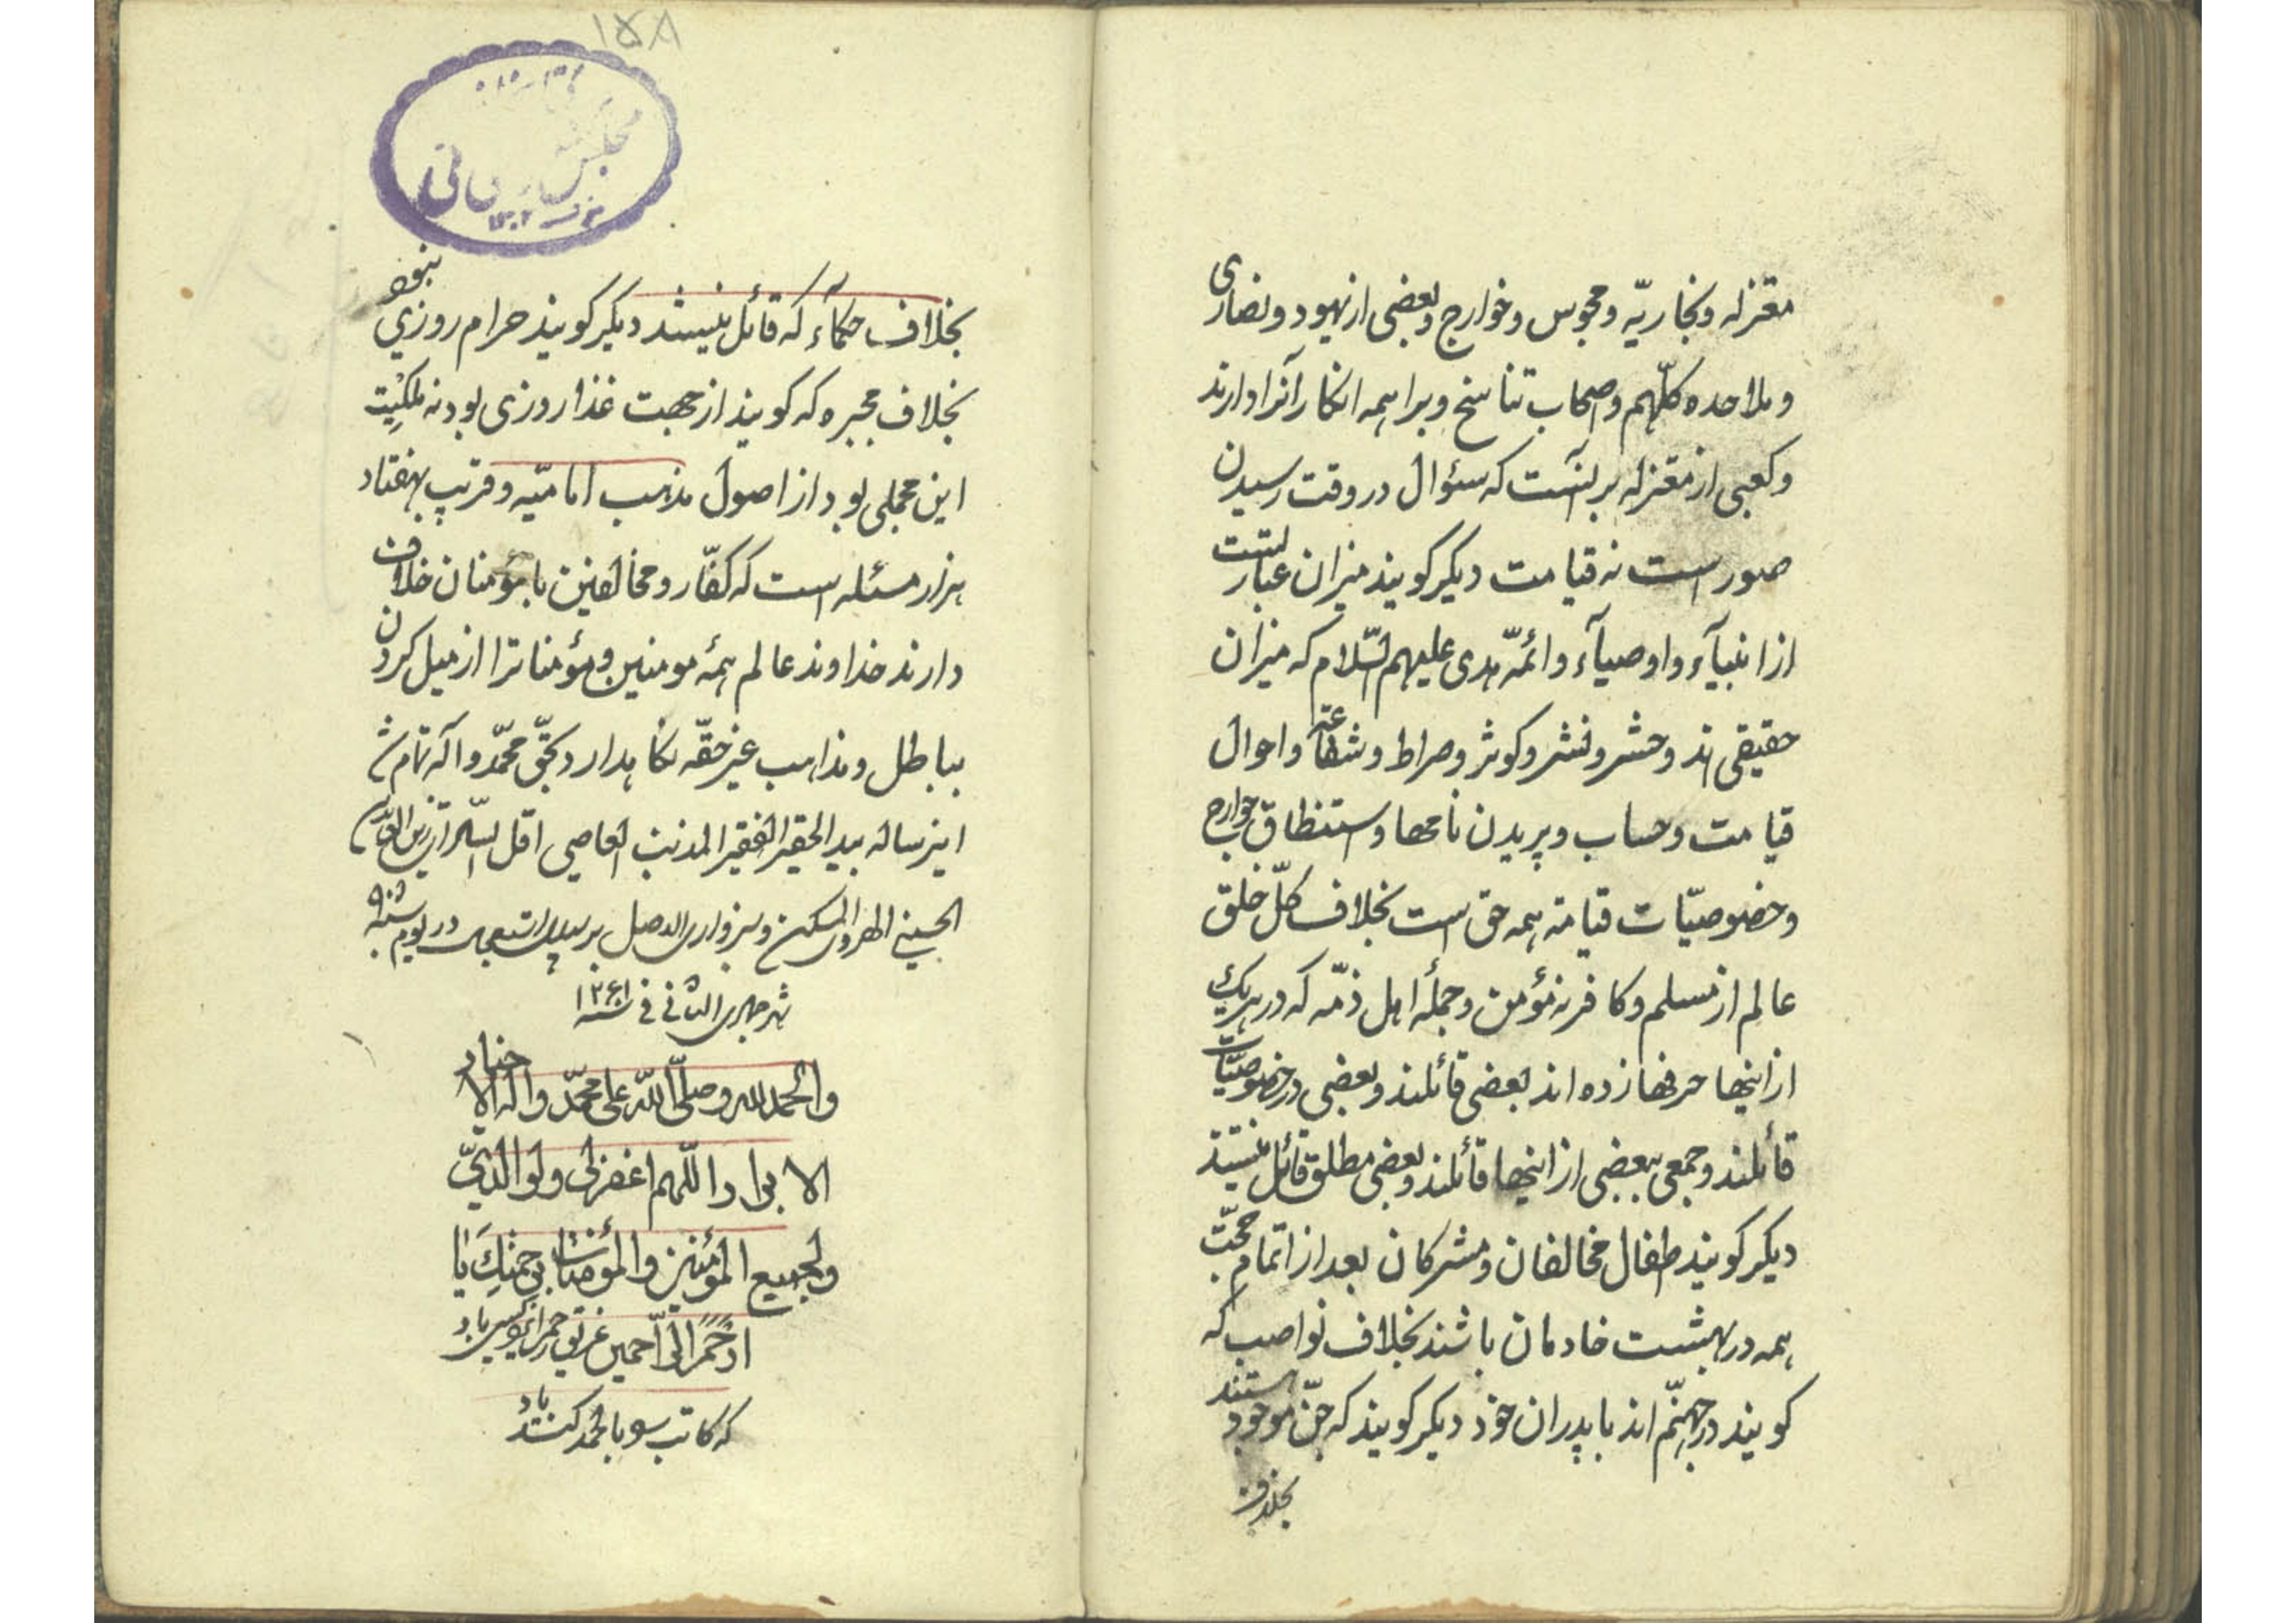 معتزله و نجاریّه و مجوس و خوارج و بعضی از یهود و نصاری
و ملاحده کلّهم و اصحاب تناسخ و براهمه انکار آنرا دارند
و کعبی از معتزله بر آنست که سئوال در وقت رسیدن
صور است نه قیامت دیکر کویند میزان عبارتست
از انبیآء و اوصیآء و ائمّه هدی علیهم السّلام که میزان
حقیقی اند و حشر و نشر و کوثر و صراط و شفاعة و احوال
قیامت و حساب و پریدن نامها و استنطاق جوارح
و خصوصیّات قیامة همه حق است بخلاف کلّ خلق
عالم از مسلم و کافر نه مؤمن و جملهٔ اهل ذمّه که در هریک
از اینها حرفها زده اند بعضی قائلند و بعضی در خصوصیّات
قائلند و جمعی ببعضی از اینها قائلند و بعضی مطلق قائل نیستند
دیکر کویند اطفال مخالفان و مشرکان بعد از اتمام حجّت
همه در بهشت خادمان باشند بخلاف نواصب که
کویند در جهنّم اند با پدران خود دیکر کویند که جنّ موجود هستند
بخلاف
۱۵۸
مجلس شورای ملی
۱۳۰۲
بخلاف حکمآء که قائل نیستند دیکر کویند حرام روزی نبود
بخلاف مجبره که کویند از جهت غذا روزی بود نه ملکیّت
این مجملی بود از اصول مذهب امامیّه و قریب بهفتاد
هزار مسئله است که کفّار و مخالفین با مؤمنان خلاف
دارند خداوند عالم همهٔ مومنین و مؤمناترا از میل کردن
بباطل و مذاهب غیر حقّه نکاهدارد بحقّ محمّد و آله تمام شد
اینرساله بید الحقیر الفقیر المذنب العاصی اقل السادات زین العابدین
الحسینی المسکن و سبزواری الاصل بر سبیل استعجال در یوم شنبه
شهر جمادی الثانی فی سنه ۱۲۶۱
والحمدلله و صلّی الله علی محمّد و اله الاخیار
الابرار اللّهم اغفرلی و لوالدیّ
و لجمیع المؤمنین و المؤمنات برحمتک یا
ارحم الرّاحمین غریق رحمت ایزد کسی باد
که کاتب را بالحمد کند یاد